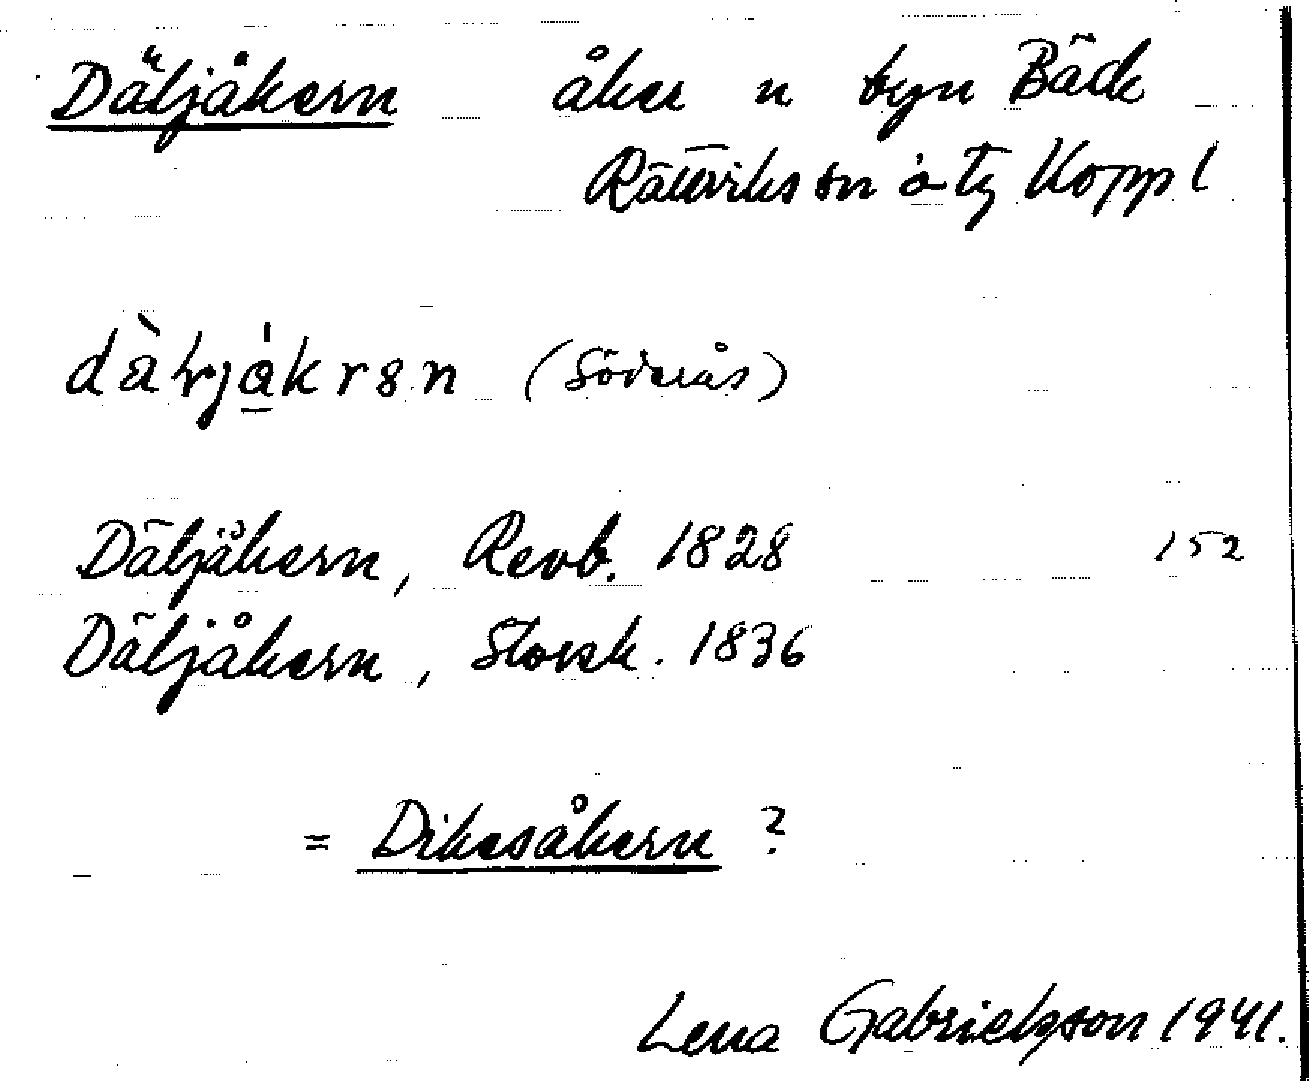 Däljåkern åker n byn Bäck
Rättviks sn o tg Kopp l
dàljákrən (Söderås)
Däljåkern, Revb. 1828 152
Däljåkern, Storsk. 1836
= Dikesåkern ?
Lena Gabrielsson 1941.